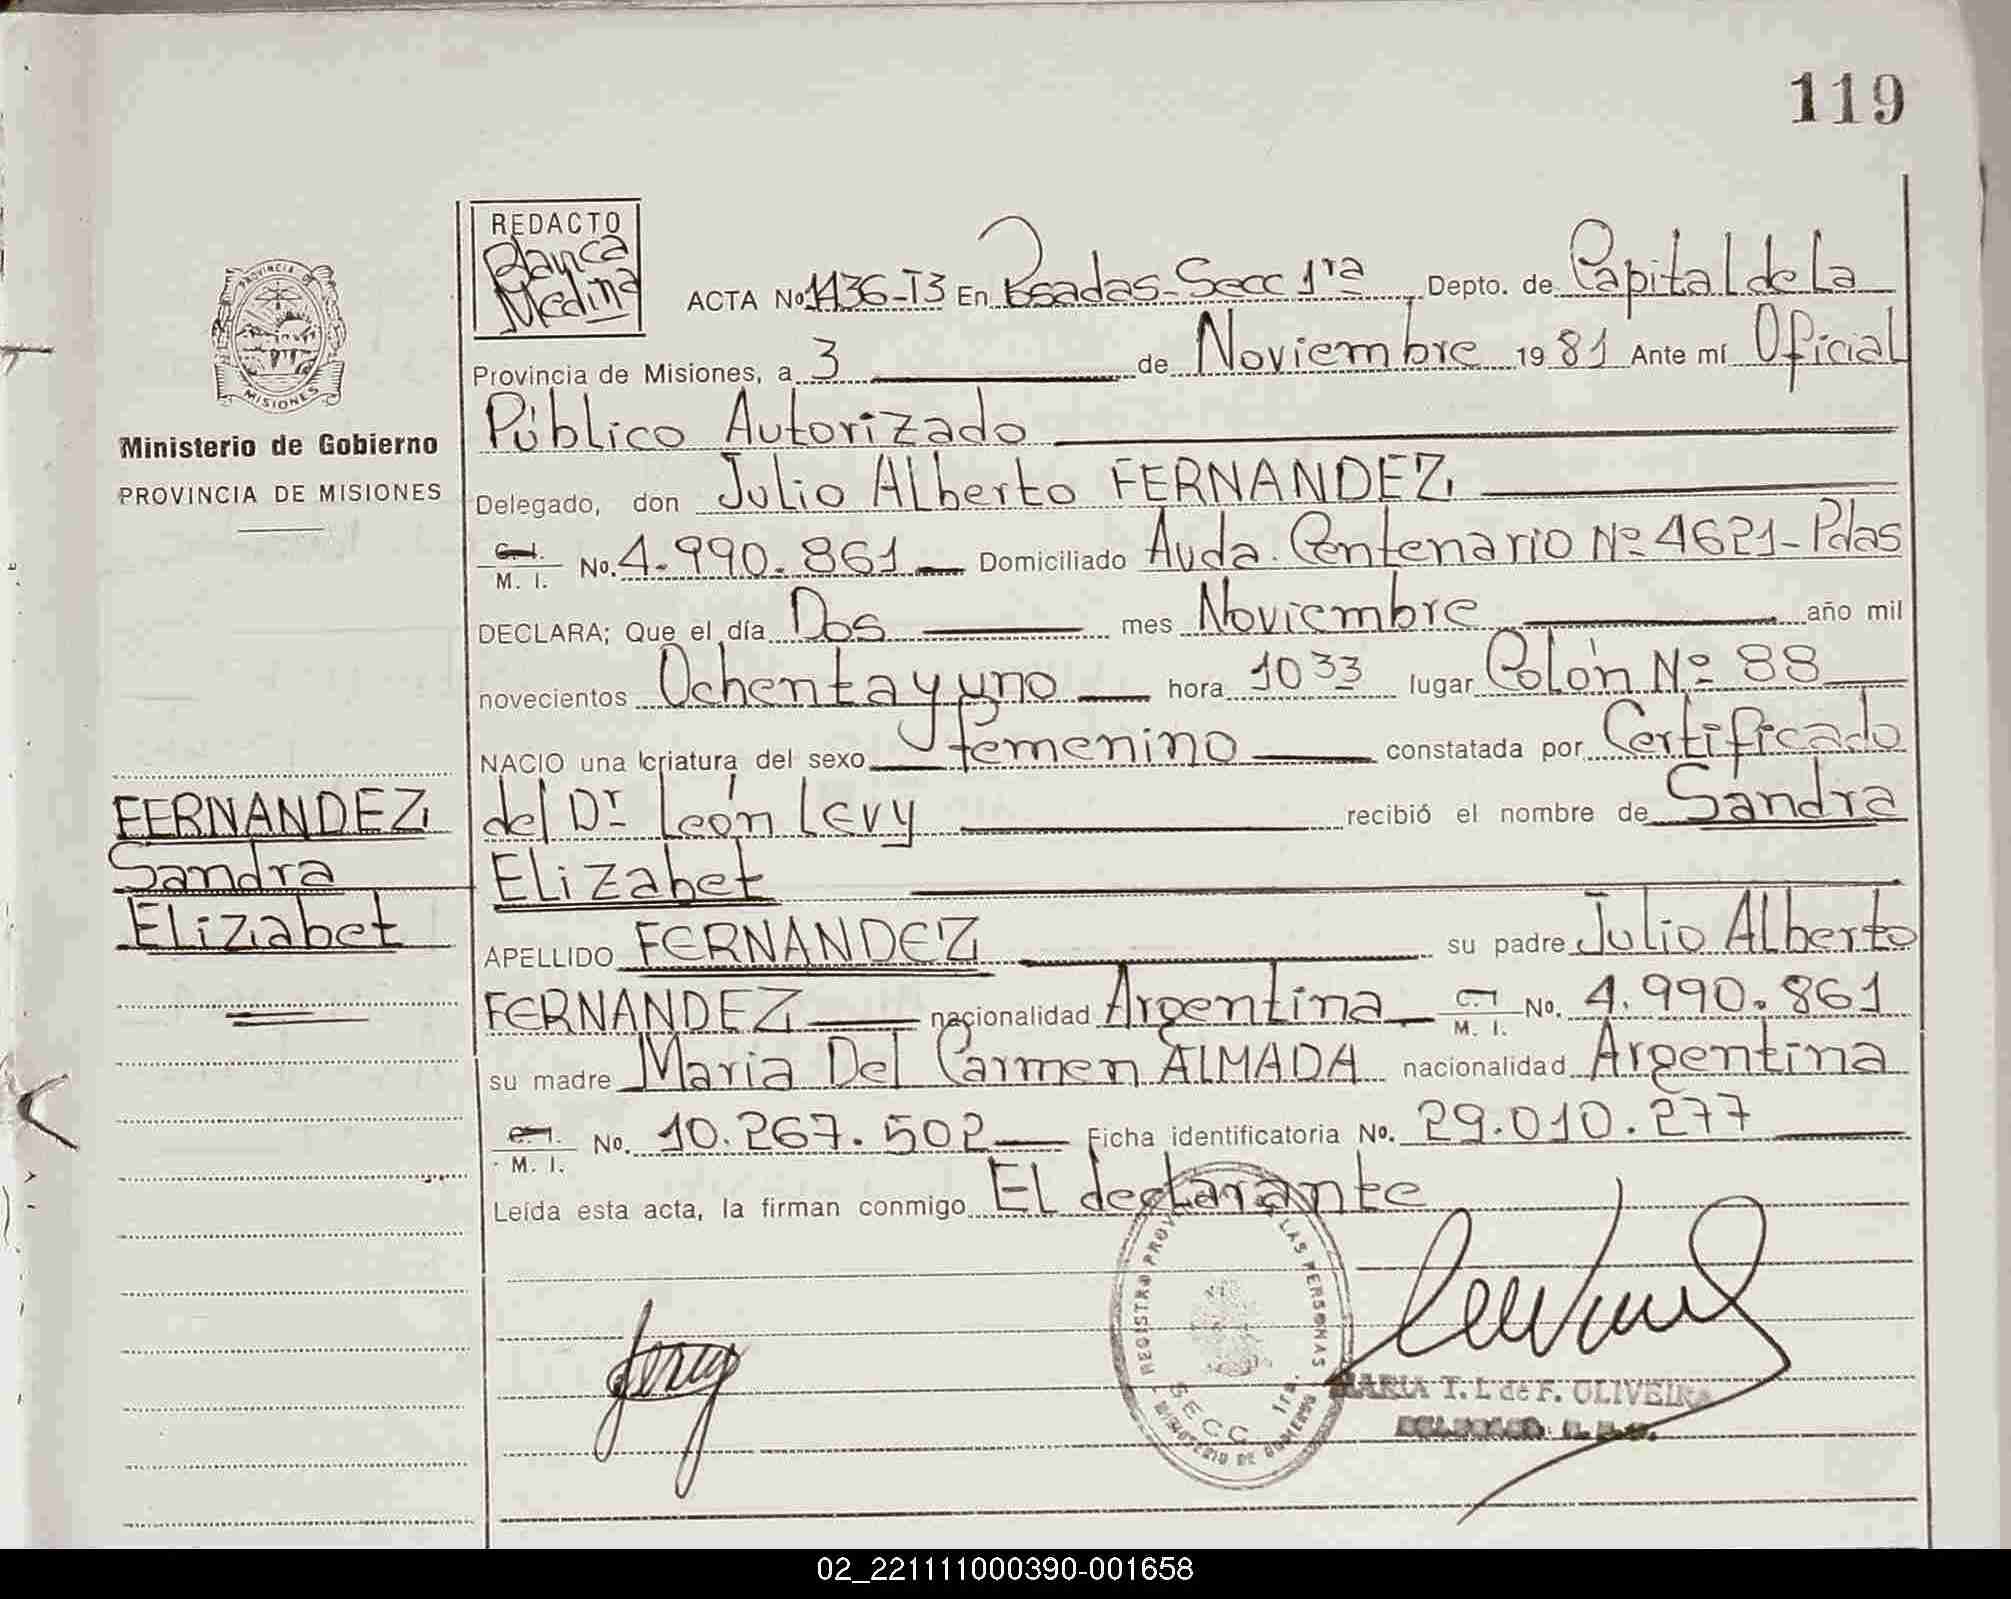 119
REDACTO
Blanca
Medina
ACTA No 1436-T3 En Posadas-Secc 1ra Depto. de Capital de la
Provincia de Misiones, a 3 de Noviembre 1981 Ante mí Oficial
Público Autorizado
Delegado, don Julio Alberto FERNANDEZ
C.I.
M. I. No. 4.990.861 Domiciliado Avda. Centenario Nº 4621-Pdas
DECLARA; Que el día Dos mes Noviembre año mil
novecientos Ochenta y uno hora 10 33 lugar Colón Nº 88
NACIO una criatura del sexo femenino constatada por Certificado
del Dr León Levy recibió el nombre de Sandra
Elizabet
APELLIDO FERNANDEZ su padre Julio Alberto
FERNANDEZ nacionalidad Argentina C.I. M. I. No. 4.990.861
su madre Maria Del Carmen ALMADA nacionalidad Argentina
C.I.
M. I. No. 10.267.502 Ficha identificatoria No. 29.010.277
Leída esta acta, la firman conmigo El declarante
PROVINCIA DE
MISIONES
Ministerio de Gobierno
PROVINCIA DE MISIONES
FERNANDEZ
Sandra
Elizabet
REGISTRO PROV LAS PERSONAS
SECC 1ra.
MINISTERIO DE GOBIERNO
MARIA T. L de F. OLIVEIRA
02_221111000390-001658